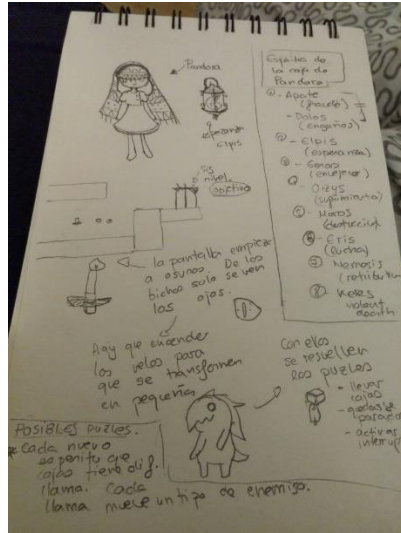 Pandora
esperanza
elpis
Espíritu de
la caja de
Pandora
- Apate
(fraude)
- Dolos
(engaños)
- Elpis
(esperanza)
- Geras
(envejecer)
- Oizys
(sufrimiento)
- Moros
(destrucción)
- Eris
(lucha)
- Nemesis
(retribution
- Keres
violent
death
nivel.
objetivo
la pantalla empieza
a oscuras. De los
bichos solo se ven
los ojos.
Hay que encender
las velas para
que se transformen
en pequeños
Con ellos
se resuelven
los puzles
- llevar
cajas
- quedarse
parado
- activar
interrup
POSIBLES PUZLES.
Cada nuevo
espíritu que
cojas tiene dif.
llama. Cada
llama mueve un tipo de enemigo.